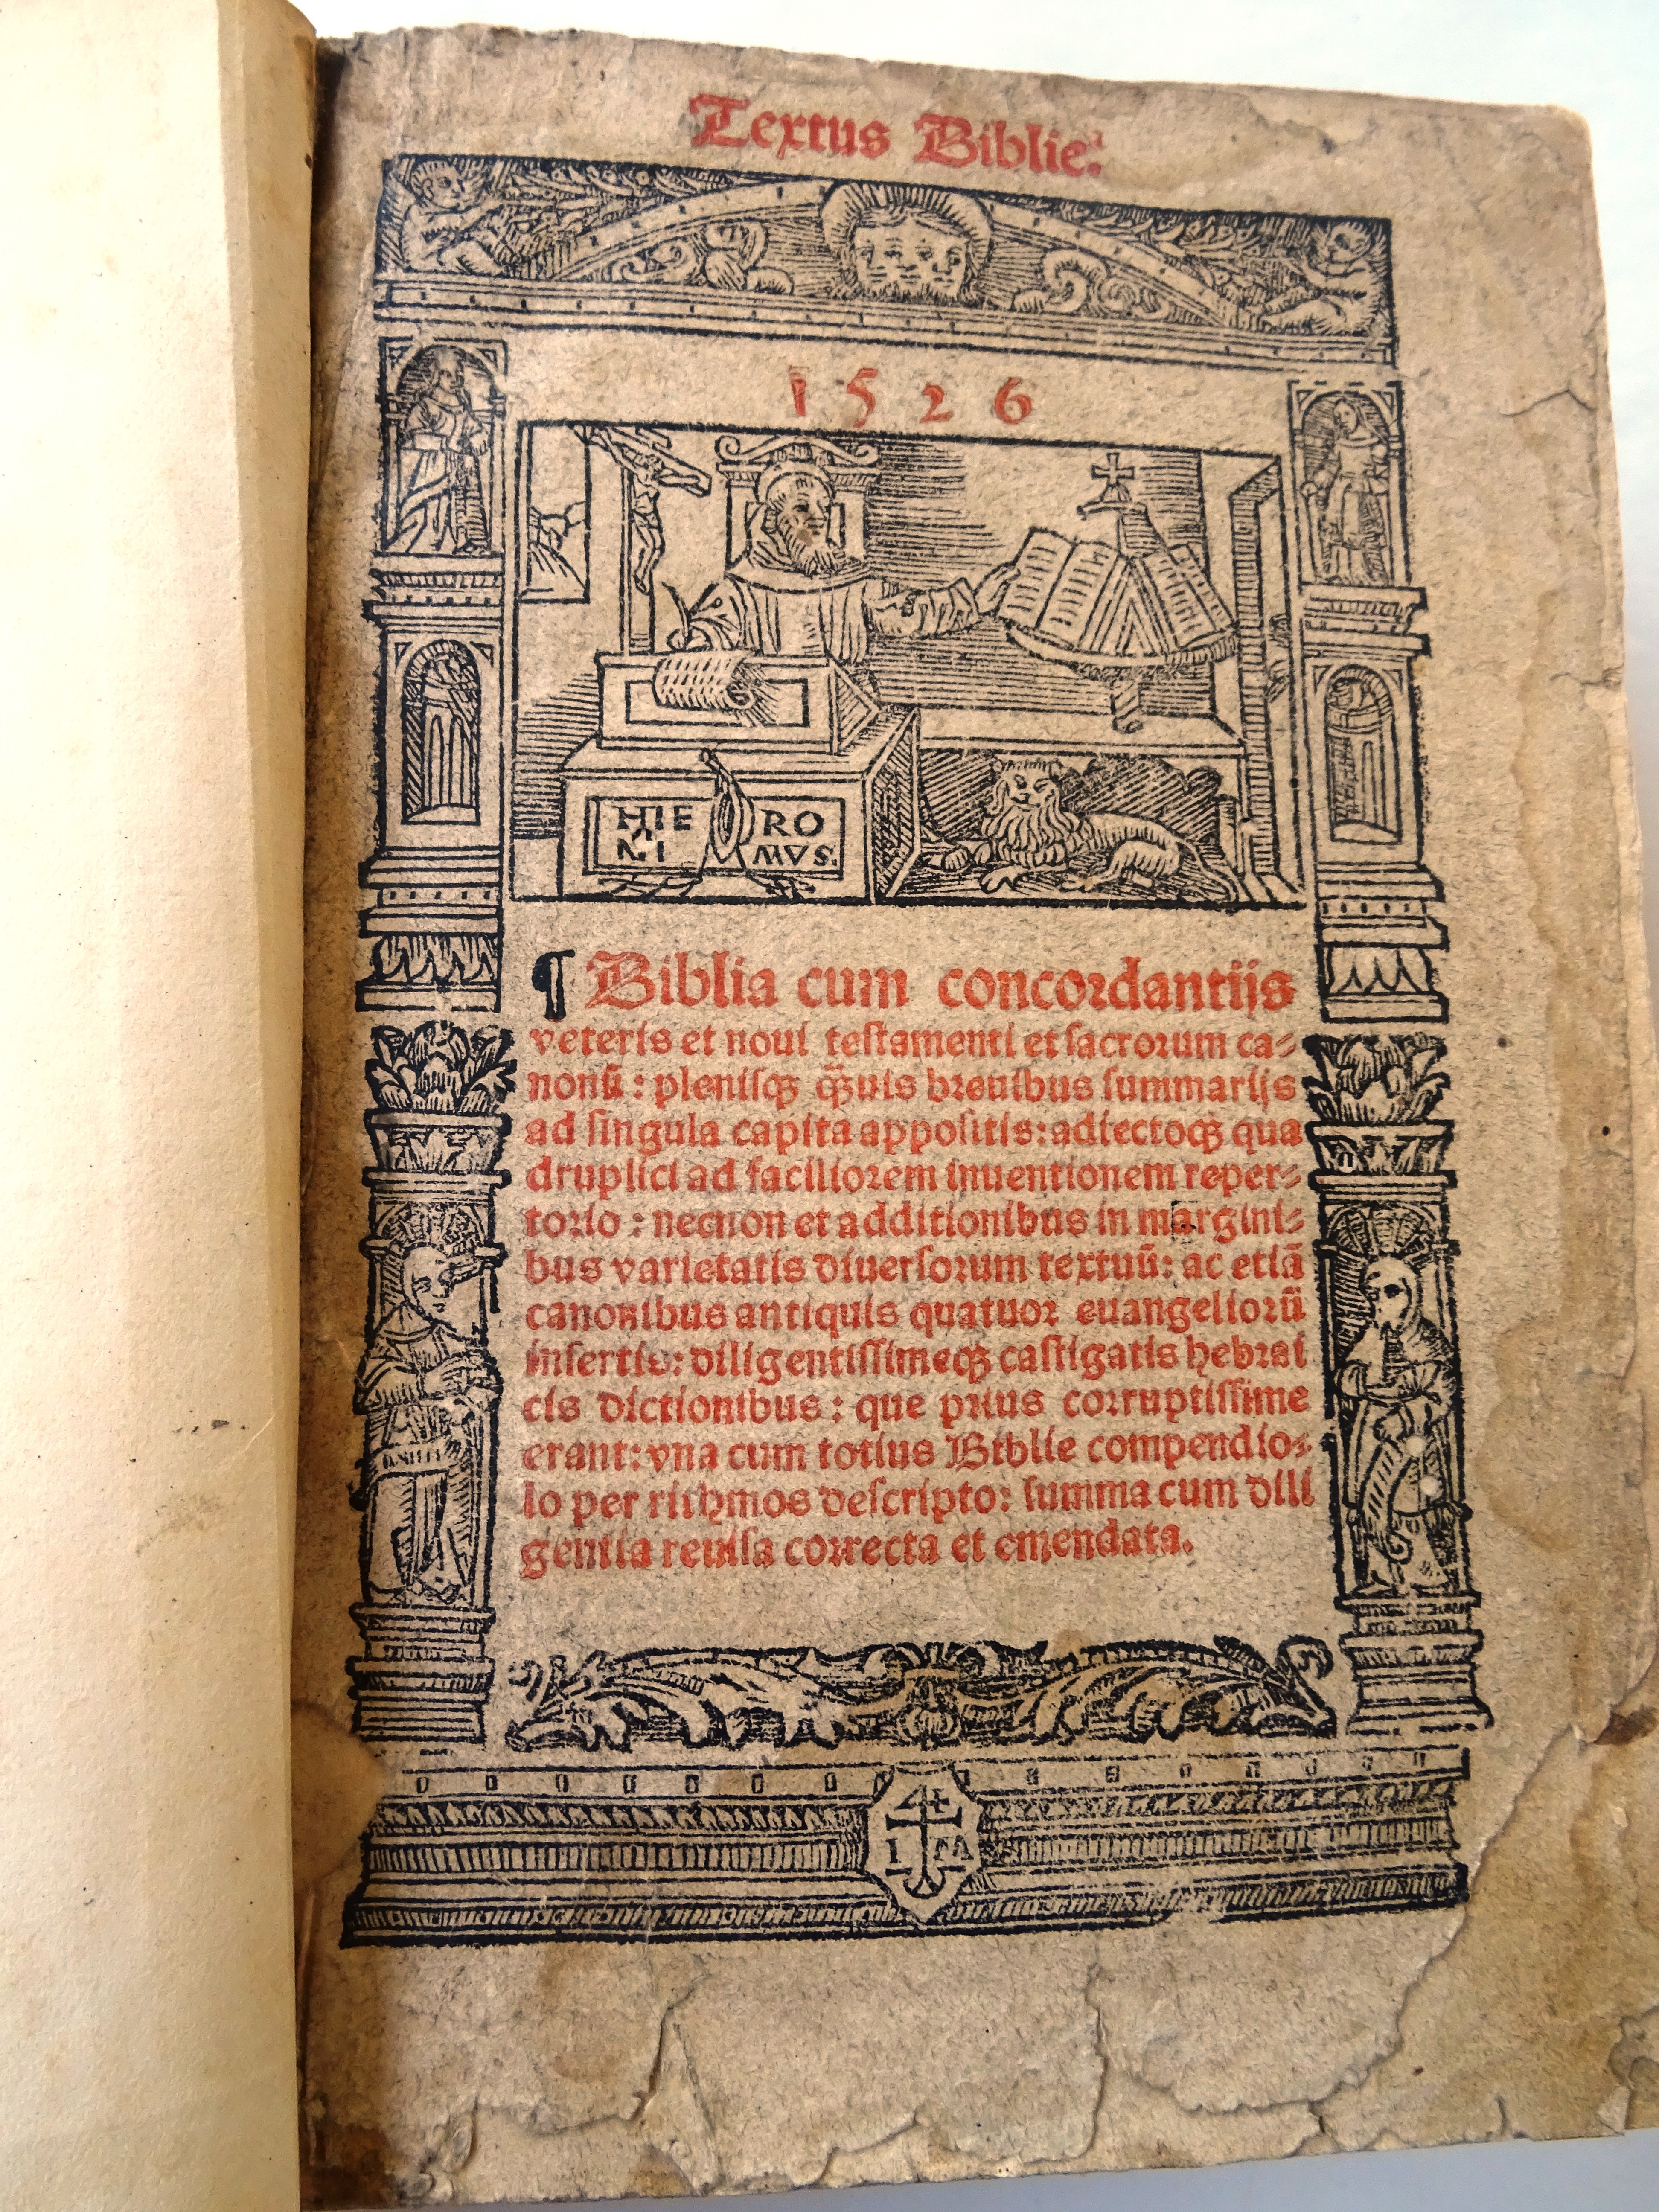 Textus Biblie.
1526
HIE RO
NI MVS.
¶ Biblia cum concordantijs
veteris et noui testamenti et sacrorum ca-
nonū: plenisqꝫ qᷓuis breuibus summarijs
ad singula capita appositis: adiectoqꝫ qua
druplici ad faciliorem inuentionem reper-
torio: necnon et additionibus in margini-
bus varietatis diuersorum textuū: ac etiā
canonibus antiquis quatuor euangeliorū
insertis: diligentissimeqꝫ castigatis hebrai
cis dictionibus: que prius corruptissime
erant: vna cum totius Biblie compendio-
lo per rithmos descripto: summa cum dili
gentia reuisa correcta et emendata.
I M